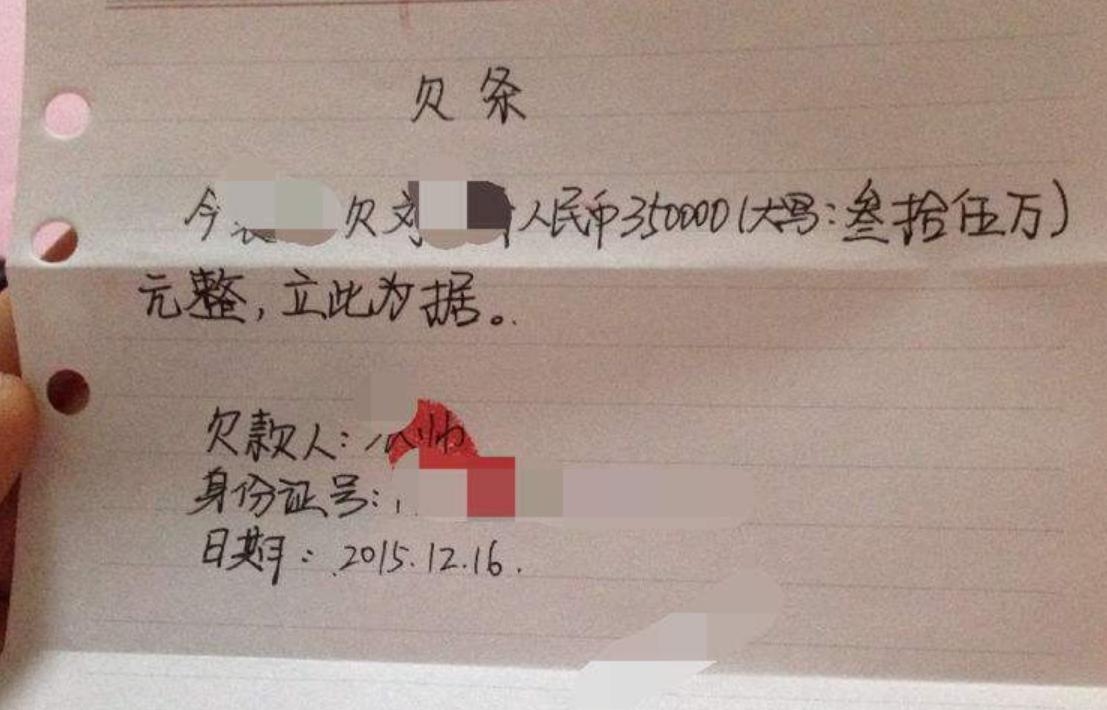 欠条
今 欠 人民币350000(大写:叁拾伍万)
元整,立此为据。
欠款人:
身份证号:
日期:2015.12.16.